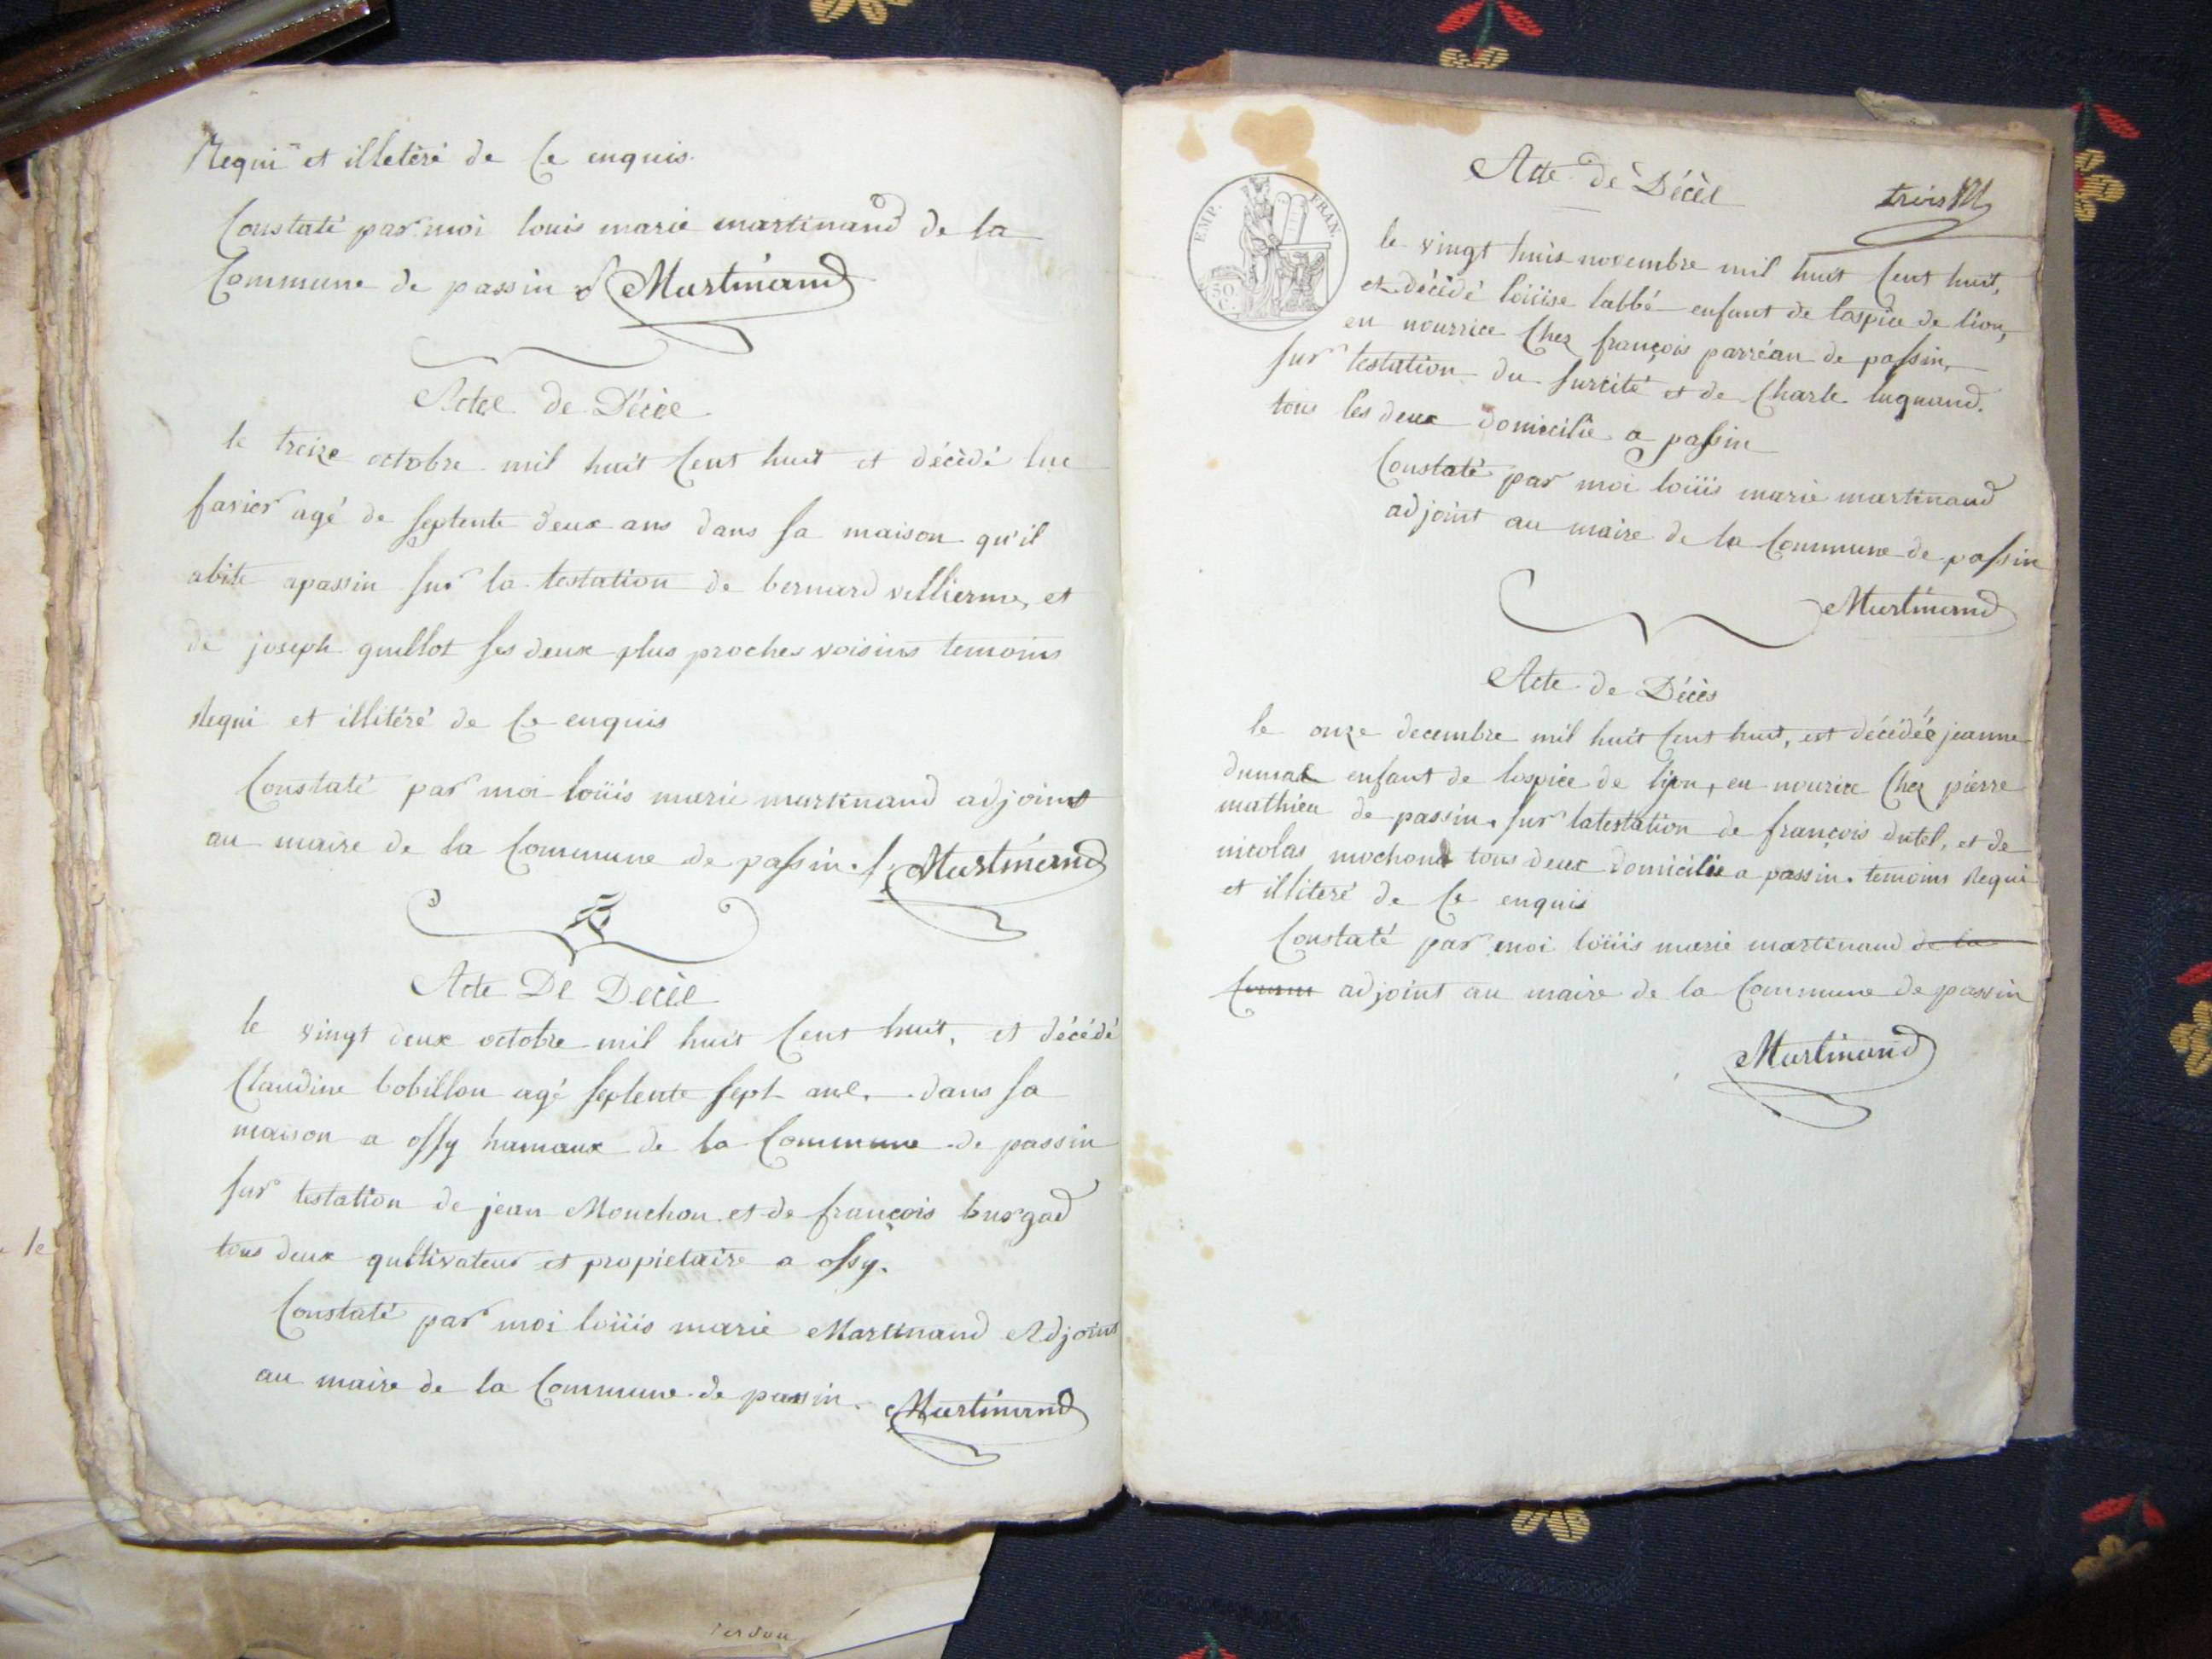 Requi et illetéré de Ce enquis.
Constaté par moi louis marie martinand de la
Commune de passin Martinand
Acte de Décée
le treize octobre mil huit Cent huit et décèdé luc
favier agé de septente deux ans dans sa maison qu'il
abite apassin sur la testation de bernard vellierme, et
de joseph guillot ses deux plus proches voisins temoins
Requi et illitéré de Ce enquis
Constaté par moi loüis marie martinand adjoint
au maire de la Commune de passin. Martinand
Acte De Decée
le vingt deux octobre mil huit Cent huit, et décédé
Claudine bobillon agé septente sept ans. dans sa
maison a ossy hamaux de la Commune de passin
sur testation de jean Mouchon et de françois burgad
tous deux qultivateur et propietaire a ossy.
Constaté par moi loüis marie Martinand Adjoint
au maire de la Commune de passin. Martinand
le
Acte de Décée
trois
EMP. FRAN.
50 C.
le vingt huis novembre mil huit Cent huit,
et décédé loüise labbé enfant de lospice de lion,
en nourrice Chez françois parréan de passin,
sur testation du surcité et de Charle lugnand.
tous les deux domicilié a passin
Constaté par moi loüis marie martinand
adjoint au maire de la Commune de passin
Martinand
Acte de Décès
le onze decembre mil huit Cent huit, est décédée jeanne
dumas enfant de lospice de lion, en nourice Chez pierre
mathieu de passin. sur latestation de françois dutel, et de
nicolas mochon tous deux domicilie a passin. temoins Requi
et illiteré de Ce enquis
Constaté par moi loüis marie martinand de la
Comm adjoint au maire de la Commune de passin
Martinand